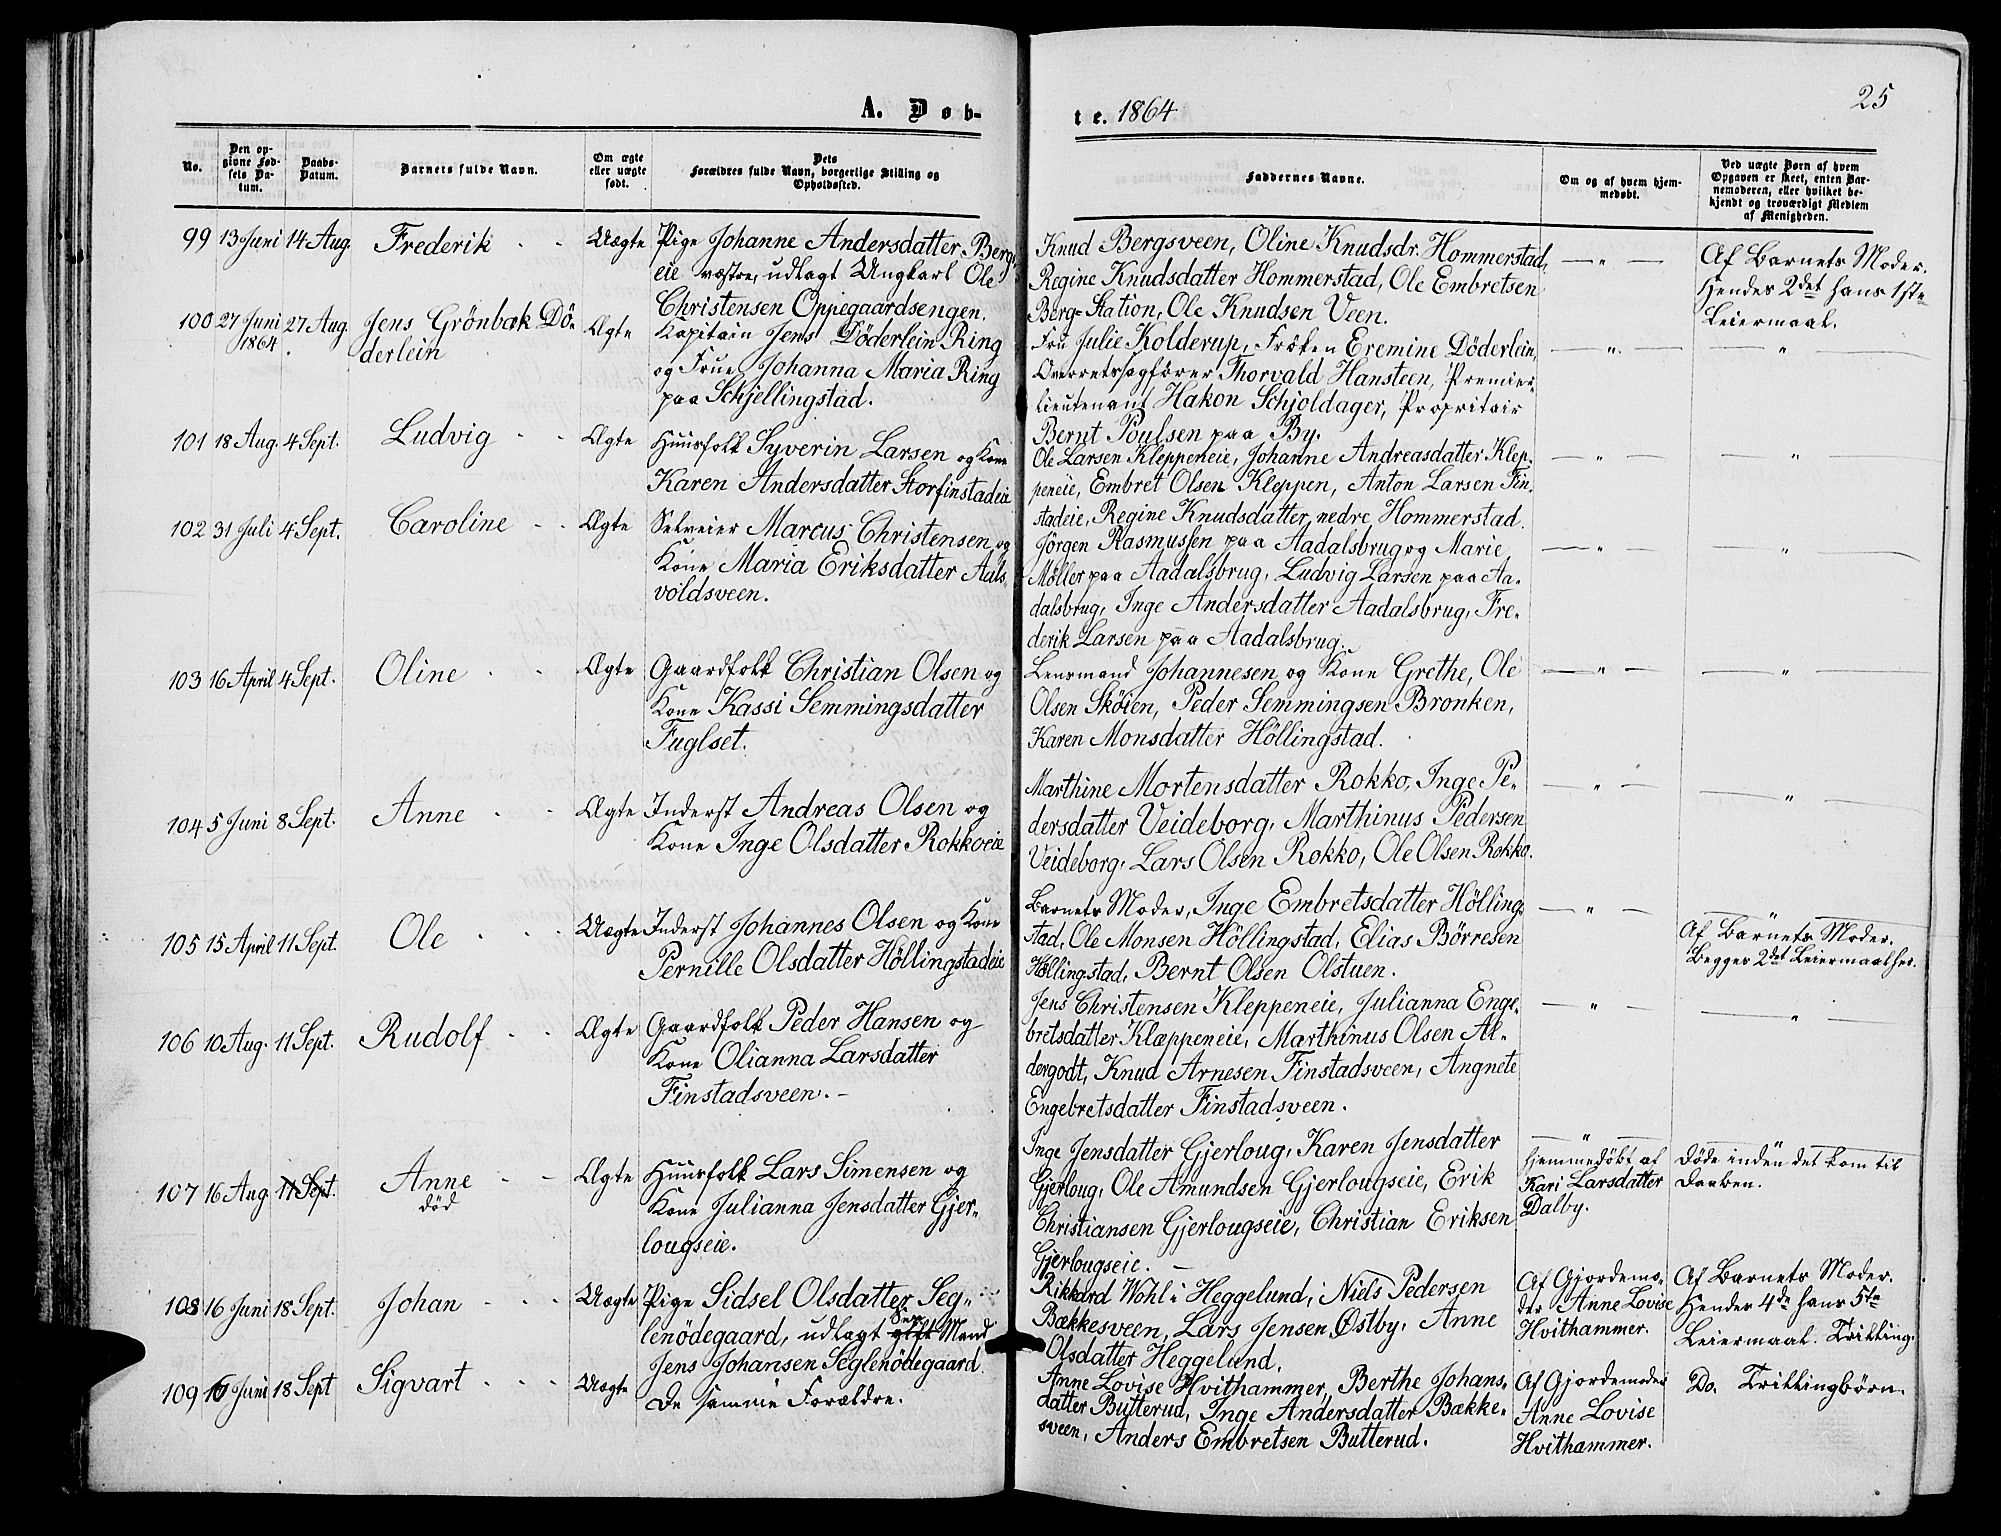 A. Døb-
No.
Den op-
givne Fød-
sels Da-
tum.
Daabs-
Datum.
Barnets fulde Navn.
Om ægte
eller uægte
født.
Dets
Forældres fulde Navn, borgerlige Stilling og
Opholdssted.
99 13 Juni 14 Aug Frederik Uægte Pige Johanne Andersdatter Berg-
eie væstre, udlagt Ungkarl Ole
Christensen Oppegaardsengen.
100 27 Juni 27 Aug. Jens Grönbæk Dö- Ægte Kapitain Jens Döderlein Ring
1864 derlein og Frue Johanna Maria Ring
paa Schjellingstad.
101 18 Aug. 4 Sept. Ludvig Ægte Huusfolk Syverin Larsen og Kone
Karen Andersdatter Storfinstadeie
102 31 Juli 4 Sept. Caroline Ægte Selveier Marcus Christensen og
Kone Maria Eriksdatter Aals-
voldsveen.
103 16 April 4 Sept. Oline Ægte Gaardfolk Christian Olsen og
Kone Kassi Semmingsdatter
Fuglset.
104 5 Juni 8 Sept. Anne Ægte Inderst Andreas Olsen og
Kone Inge Olsdatter Rokkoeie
105 15 April 11 Sept. Ole Uægte Inderst Johannes Olsen og Kone
Pernille Olsdatter Höllingstadeie
106 10 Aug. 11 Sept. Rudolf Ægte Gaardfolk Peder Hansen og
Kone Olianna Larsdatter
Finstadsveen.
107 16 Aug 11 Sept. Anne Ægte Huusfolk Lars Simensen og
död Kone Julianna Jensdatter Gjer-
lougseie.
108 16 Juni 18 Sept. Johan Uægte Pige Sidsel Olsdatter Seg-
lenödegaard, udlagt gift Mand
Jens Johansen Seglenödegaard.
109 16 Juni 18 Sept Sigvart Uægte De samme Forældre.
te. 1864
25
Faddernes Navne.
Om og af hvem hjem-
medøbt.
Ved uægte Børn af hvem
Opgaven er skeet, enten Bar-
nemoderen, eller hvilket be-
kjendt og troværdigt Medlem
af Menigheden.
Knud Bergsveen, Oline Knudsdr. Hommerstad, — „ — Af Barnets Moder.
Regine Knudsdatter Hommerstad, Ole Embretsen Hendes 2det hans 1ste
Berg-Station, Ole Knudsen Veen. Leiermaal.
Fru Julie Kolderup, Fröken Eremine Döderlein, — „ — — „ —
Overretssagförer Thorvald Hansteen, Premier-
lieutenant Hakon Schjoldager, Propritair
Bernt Poulsen paa By.
Ole Larsen Kleppeneie, Johanne Andreasdatter Klep- — „ — — „ —
peneie, Embret Olsen Kleppen, Anton Larsen Fin-
stadeie, Regine Knudsdatter nedre Hommerstad.
Jörgen Rasmussen paa Aadalsbrug og Marie — „ — — „ —
Möller paa Aadalsbrug, Ludvig Larsen paa Aa-
dalsbrug, Inge Andersdatter Aadalsbrug, Fre-
derik Larsen paa Aadalsbrug.
Lensmand Johannesen og Kone Grethe, Ole — „ — — „ —
Olsen Sköien, Peder Semmingsen Bronken,
Karen Monsdatter Höllingstad.
Marthine Mortensdatter Rokko, Inge Pe- — „ — — „ —
dersdatter Veideborg, Marthinus Pedersen
Veideborg, Lars Olsen Rokko, Ole Olsen Rokko.
Barnets Moder, Inge Embretsdatter Hölling- — „ —
stad, Ole Monsen Höllingstad, Elias Börresen Af Barnets Moder.
Höllingstad, Bernt Olsen Olstuen. Begges 2det Leiermaal
Jens Christensen Kleppeneie, Julianna Enge- — „ — — „ —
bretsdatter Klæppeneie, Marthinus Olsen Al-
dergodt, Knud Arnesen Finstadsveen, Angnete
Engebretsdatter Finstadsveen.
Inge Jensdatter Gjerloug, Karen Jensdatter — „ —
Gjerloug, Ole Amundsen Gjerlougseie, Erik hjemmedöbt af Döde inden det kom til
Christiansen Gjerlougseie, Christian Eriksen Kari Larsdatter Daaben.
Gjerlougseie. Dalby.
Rikkard Wohl i Heggelund, Niels Pedersen Af Gjordemo- Af Barnets Moder.
Bækkesveen, Lars Jensen Østby, Anne der Anne Lovise Hendes 4de hans 5te
Olsdatter Heggelund. Hvithammer. Leiermaal. Trilling.
Anne Lovise Hvithammer, Berthe Johans- Af Gjordemoder Do. Trillingbörn.
datter Butterud, Inge Andersdatter Bække- Anne Lovise
sveen, Anders Embretsen Butterud. Hvithammer.